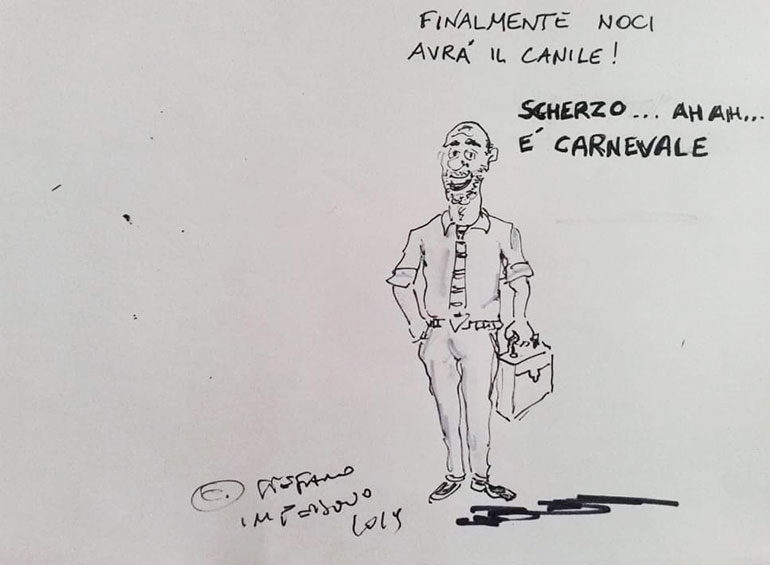 FINALMENTE NOCI
AVRÁ IL CANILE!
SCHERZO... AH AH...
É CARNEVALE
©. STEFANO
IMPEDOVO
2019